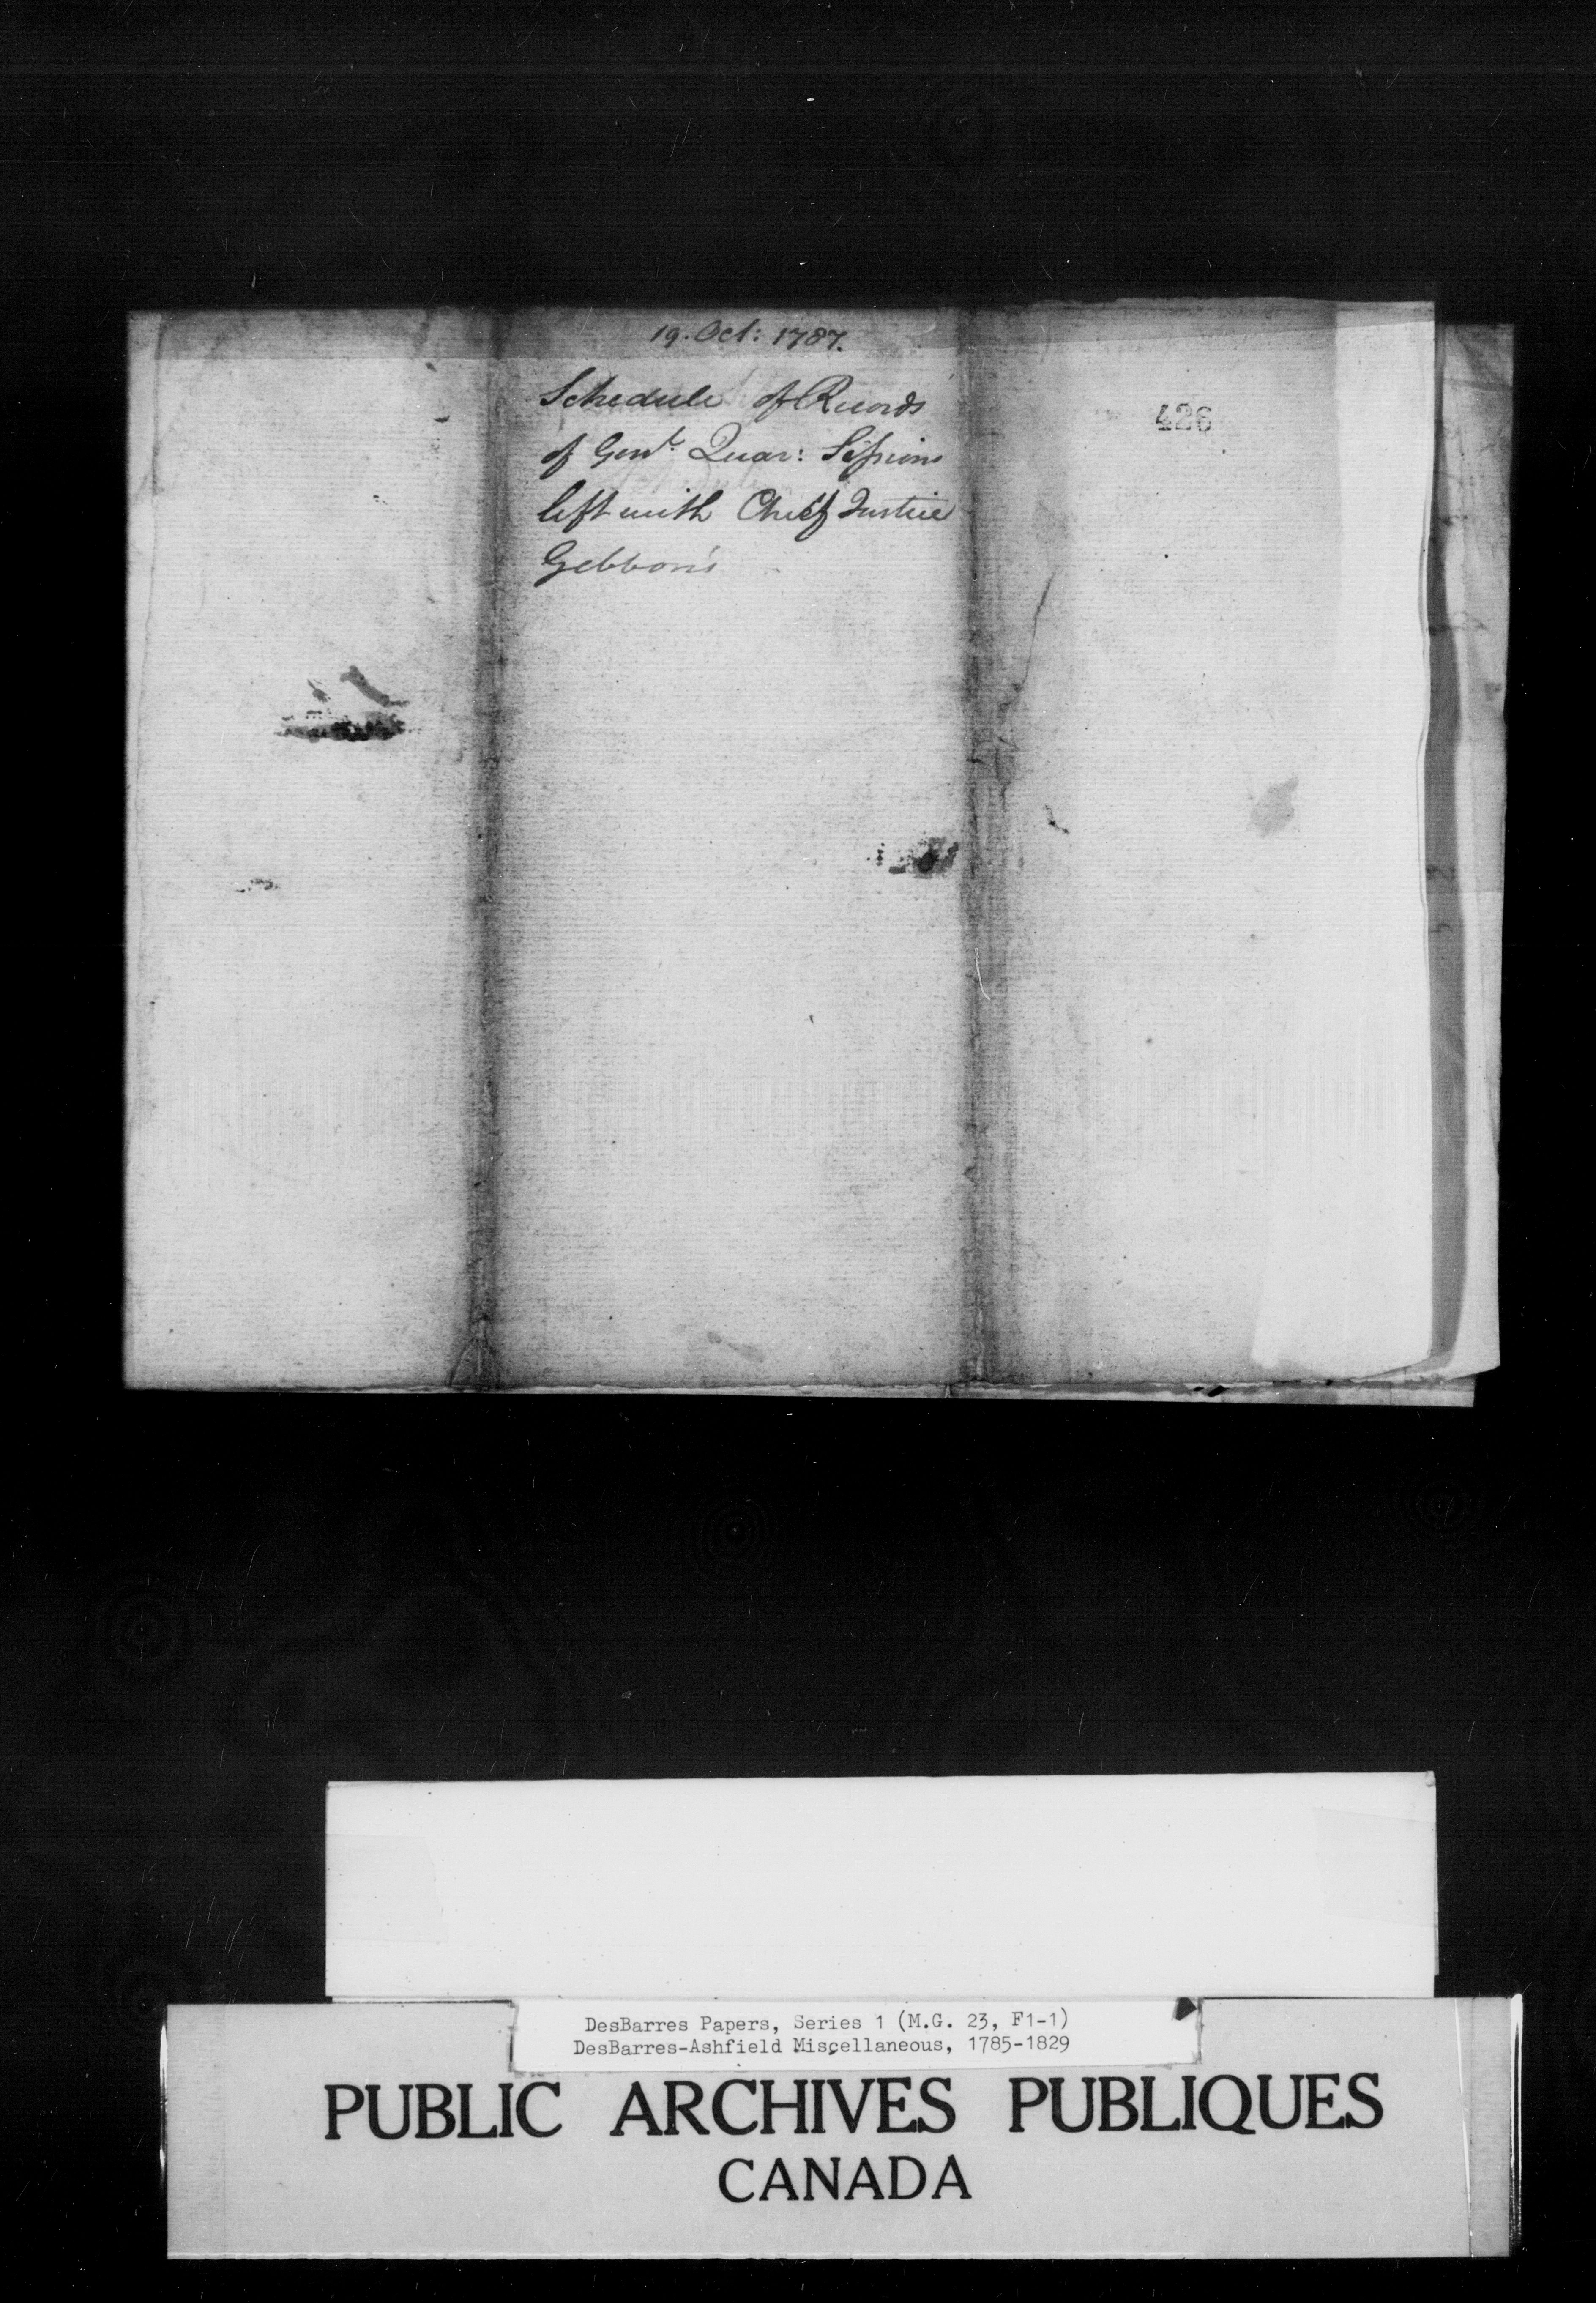 19. Oct: 1787.
Schedule of Records
of Genl. Quar: Sessions
left with Chief Justice
Gibbons
426
DesBarres Papers, Series 1 (M.G. 23, F1-1)
DesBarres-Ashfield Miscellaneous, 1785-1829
PUBLIC ARCHIVES PUBLIQUES
CANADA